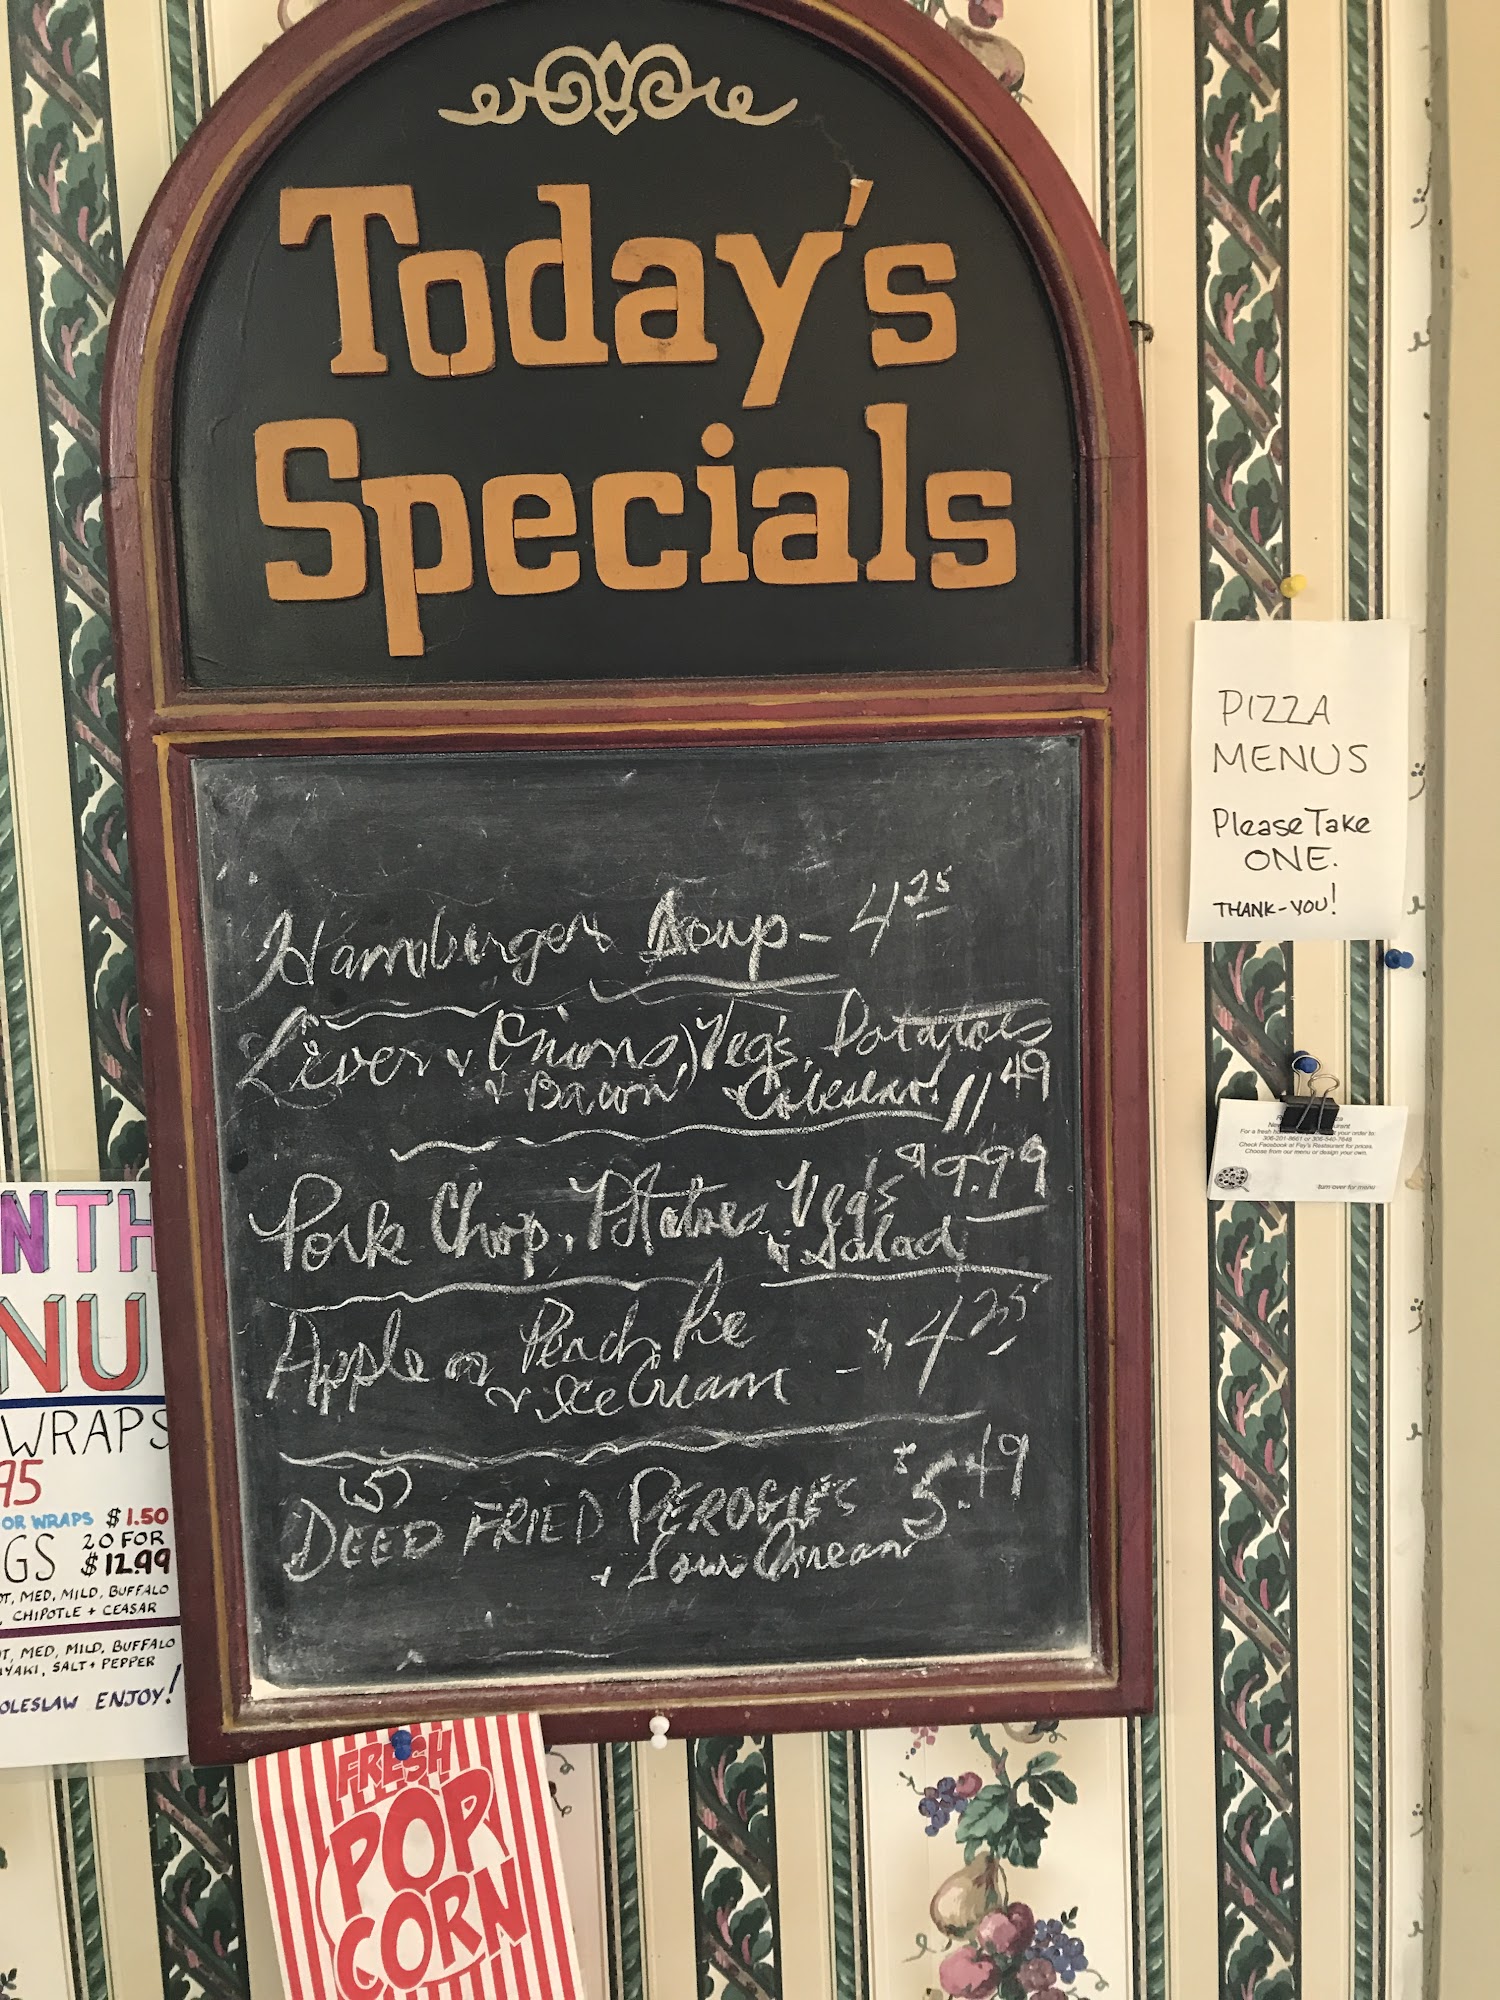 Today's
Specials
Hamburger Soup - 4 25
Liver & Onions, Veg's, Potatoes
& Bacon & Coleslaw 11 49
Pork Chop, Potatoes, Veg's 9.99
& Salad
Apple or Peach Pie
& Ice Cream - $4 25
(5)
DEED FRIED PEROGIES $5.49
+ Sour Cream
PIZZA
MENUS
Please Take
ONE.
THANK-YOU!
For a fresh
your order to:
306-201-8661 or 306-540-7648
Check Facebook at Fay's Restaurant for prices.
Choose from our menu or design your own.
turn over for menu
NTH
NU
WRAPS
95
OR WRAPS $1.50
GS 20 FOR
$12.99
OT, MED, MILD, BUFFALO
, CHIPOTLE + CEASAR
OT, MED, MILD, BUFFALO
IYAKI, SALT + PEPPER
OLESLAW ENJOY!
FRESH
POP
CORN